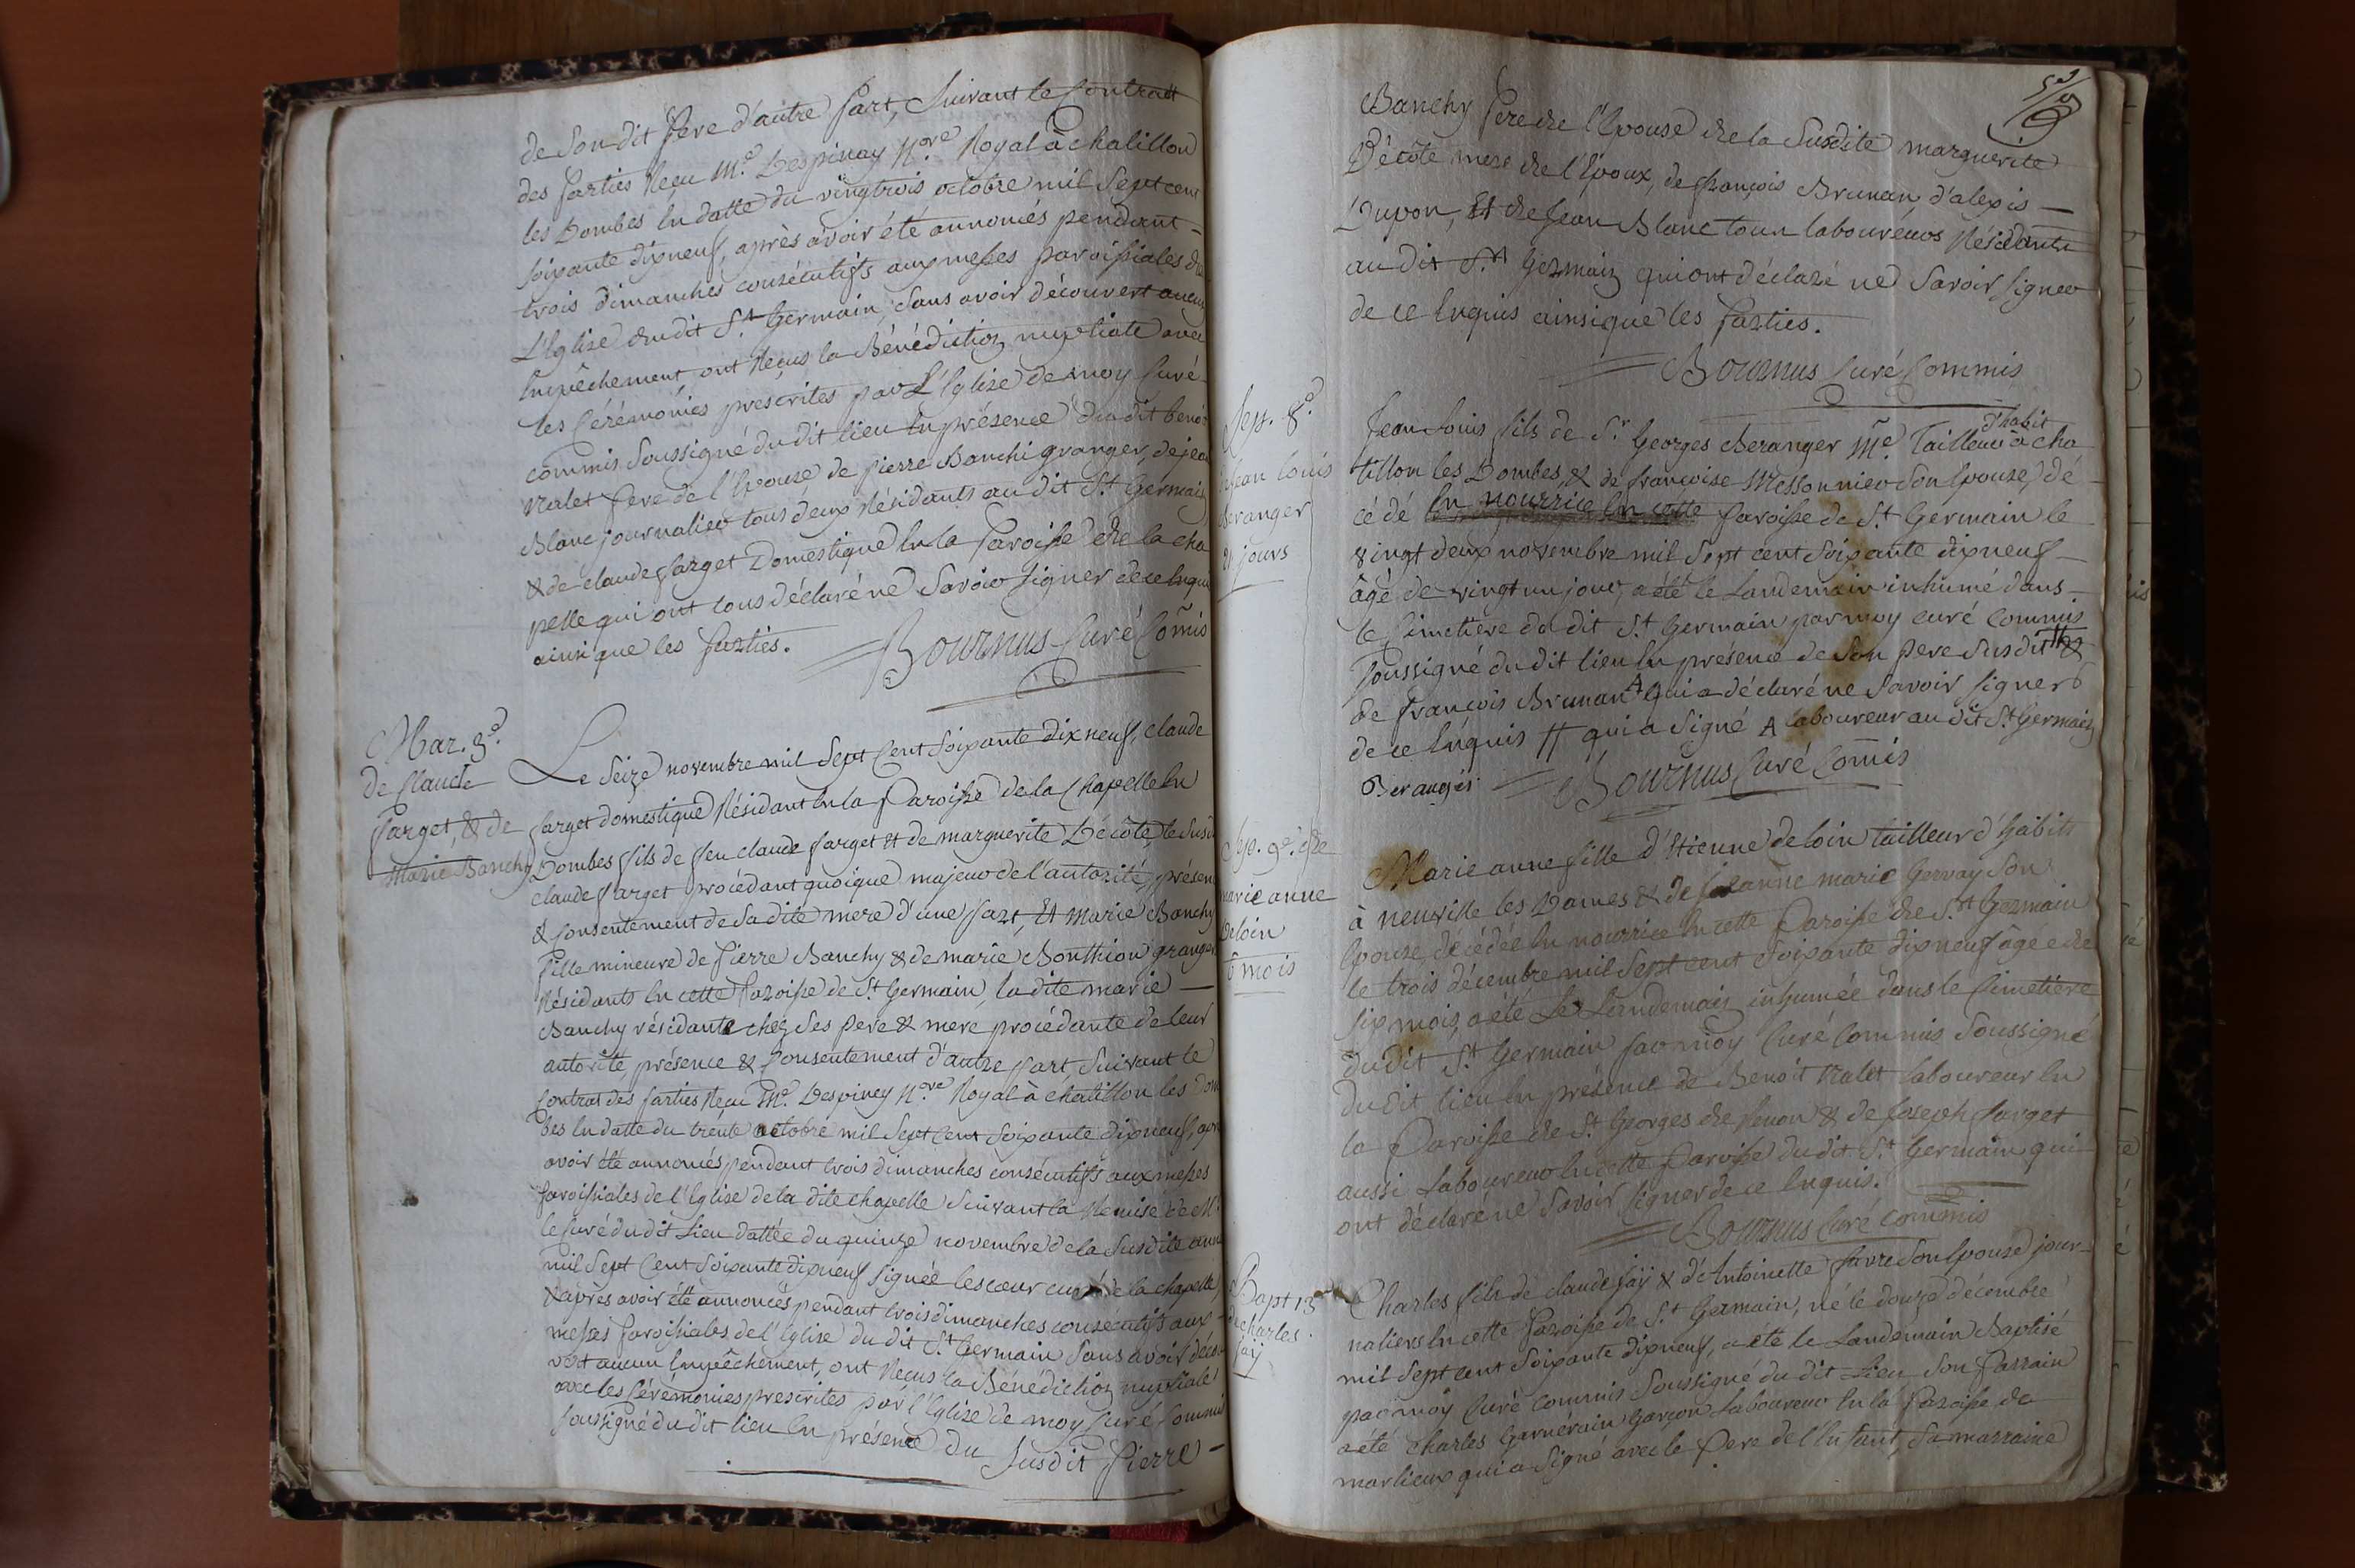 de Son dit Pere d'autre Part, Suivant le Contratt
des Parties Reçu Me. Despinay Nore Royal à chatillon
les Dombes En datte du vingtrois octobre mil Sept cent
Soixante dixneuf, après avoir été annoncés pendant –
trois dimanches consécutifs aux messes paroissiales de
L'Eglise du dit St Germain, Sans avoir découvert aucun
Empêchement, ont Reçus la Bénédiction nuptiale avec
les Cérémonies prescrites par L'Eglise de moy Curé
commis Soussigné du dit lieu En présence du dit benoit
Ralet Pere de l'Epouse, de pierre Banchi granger, de jean
Blanc journalier tous deux Résidants au dit St Germain
& de claude farget Domestique En la Paroisse de la cha
pelle qui ont tous déclaré ne Savoir Signer de ce Enquis
ainsi que les Parties.
Bournus Curé Comis
Mar. 8e.
de Claude
farget, & de
Marie Banchy
Le Seize novembre mil Sept Cent Soixante dix neuf, claude
farget domestique Résidant En la Paroisse de la Chapelle En
Dombes fils de feu claude farget et de marguerite Décôte, le Susd
claude farget procédant quoique majeur de l'autorité, présen
& Consentement de Sa dite mere d'une Part, Et Marie Banchy
fille mineure de Pierre Banchy & de marie Bonthion granger
Résidants En cette Paroisse de St Germain, la dite marie —
Banchy résidante chez Ses pere & mere procédante de leur
autorité, présence & Consentement d'autre Part, Suivant le
Contrat des Parties Reçu Me. Despiney Nore Royal à chatillon les Dom
bes En datte du trente octobre mil Sept Cent Soixante dixneuf, apre
avoir été annoncés pendant trois dimanches consécutifs aux messes
Paroissiales de l'Eglise de la dite chapelle Suivant la Remise de Mr
le Curé du dit Lieu dattée du quinze novembre de la Susdite anné
mil Sept Cent Soixante dixneuf Signée lescœur curé de la chapelle,
& après avoir été annoncés pendant trois dimanches consécutifs aux –
messes Paroissiales de l'Eglise du dit St Germain Sans avoir décou
vert aucun Empêchement, ont Reçus la Bénédiction nuptiale
avec les Cérémonies prescrites par l'Eglise de moy Curé Commis
Soussigné du dit lieu En présence du Susdit Pierre –
Banchy Pere de l'Epouse de la Susdite marguerite
Décôte mere de l'Epoux, de françois Brunan, d'alexis —
Dupon, Et de Jean Blanc tous laboureurs Résidants
au dit St Germain qui ont déclaré ne Savoir Signer
de ce Enquis ainsi que les Parties.
Bournus Curé Commis
Sep. 8e.
Jean Louis
Beranger
21 jours
Jean Louis fils de Sr Georges Beranger Me. Tailleur d'habit à cha
tillon les Dombes, & de françoise Messonnier Son Epouse, dé
cédé En nourrice En cette Paroisse de St Germain le
vingt deux novembre mil Sept cent Soixante dixneuf –
âgé de vingt un jour, a été le Landemain inhumé dans
le Cimetière du dit St Germain par moy curé Commis
Soussigné du dit lieu En présence de Son pere Susdit # &
de françois Brunan A qui a déclaré ne Savoir Signer
de ce Enquis # qui a Signé A laboureur au dit St Germain
Beranger Bournus Curé Comis
Sep. 9e. de
marie anne
Deloin
6 mois
Marie anne fille d'Etienne deloin tailleur d'habits
à neuville les Dames & de Suzanne marie Gervay Son
Epouse, décédée En nourrice En cette Paroisse de St Germain
le trois décembre mil Sept cent Soixante dixneuf âgée de
Six mois, a été Le Landemain inhumée dans le Cimetière
du dit St Germain par moy Curé Commis Soussigné
du dit lieu En présence de Benoit Ralet laboureur En
la Paroisse de St Georges de Renon & de Joseph farget
aussi Laboureur En cette Paroisse du dit St Germain qui
ont déclaré ne Savoir Signer de ce Enquis.
Bournus Curé Commis
Bapt 13
de charles
faÿ
Charles fils de claude faÿ & d'Antoinette favre Son Epouse jour-
naliers En cette Paroisse de St Germain, né le douze décembre
mil Sept cent Soixante dixneuf, a été le Landemain Baptisé
par moy Curé Commis Soussigné du dit Lieu Son Parrain
a été Charles Garnérain garçon Laboureur En la Paroisse de
marlieux qui a Signé avec le Pere de l'Enfant, Sa marraine